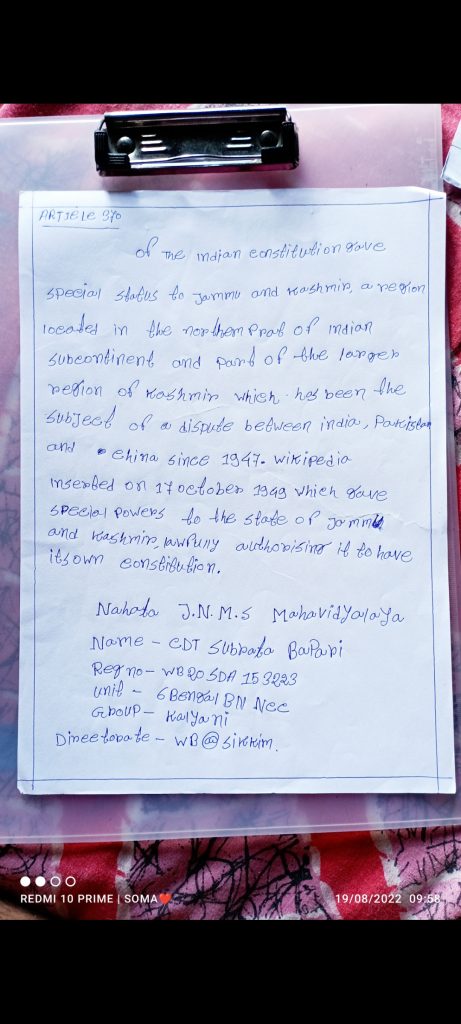 ARTICLE 370
of The indian constitution gave
special status to Jammu and Kashmir, a region
located in the northern prat of indian
subcontinent and part of the larger
region of Kashmir which has been the
subject of a dispute between india, Pakistan
and china since 1947. wikipedia
inserted on 17 october 1949 which gave
special powers to the state of Jammu
and Kashmir, lawfully authorising it to have
its own constitution.
Nahata J.N.M.S Mahavidyalaya
Name - CDT Subrata Bapari
Reg no - WB20SDA153223
unit - 6 Bengal BN Ncc
Group - Kalyani
Directorate - WB@sikkim.
REDMI 10 PRIME | SOMA❤️
19/08/2022 09:58